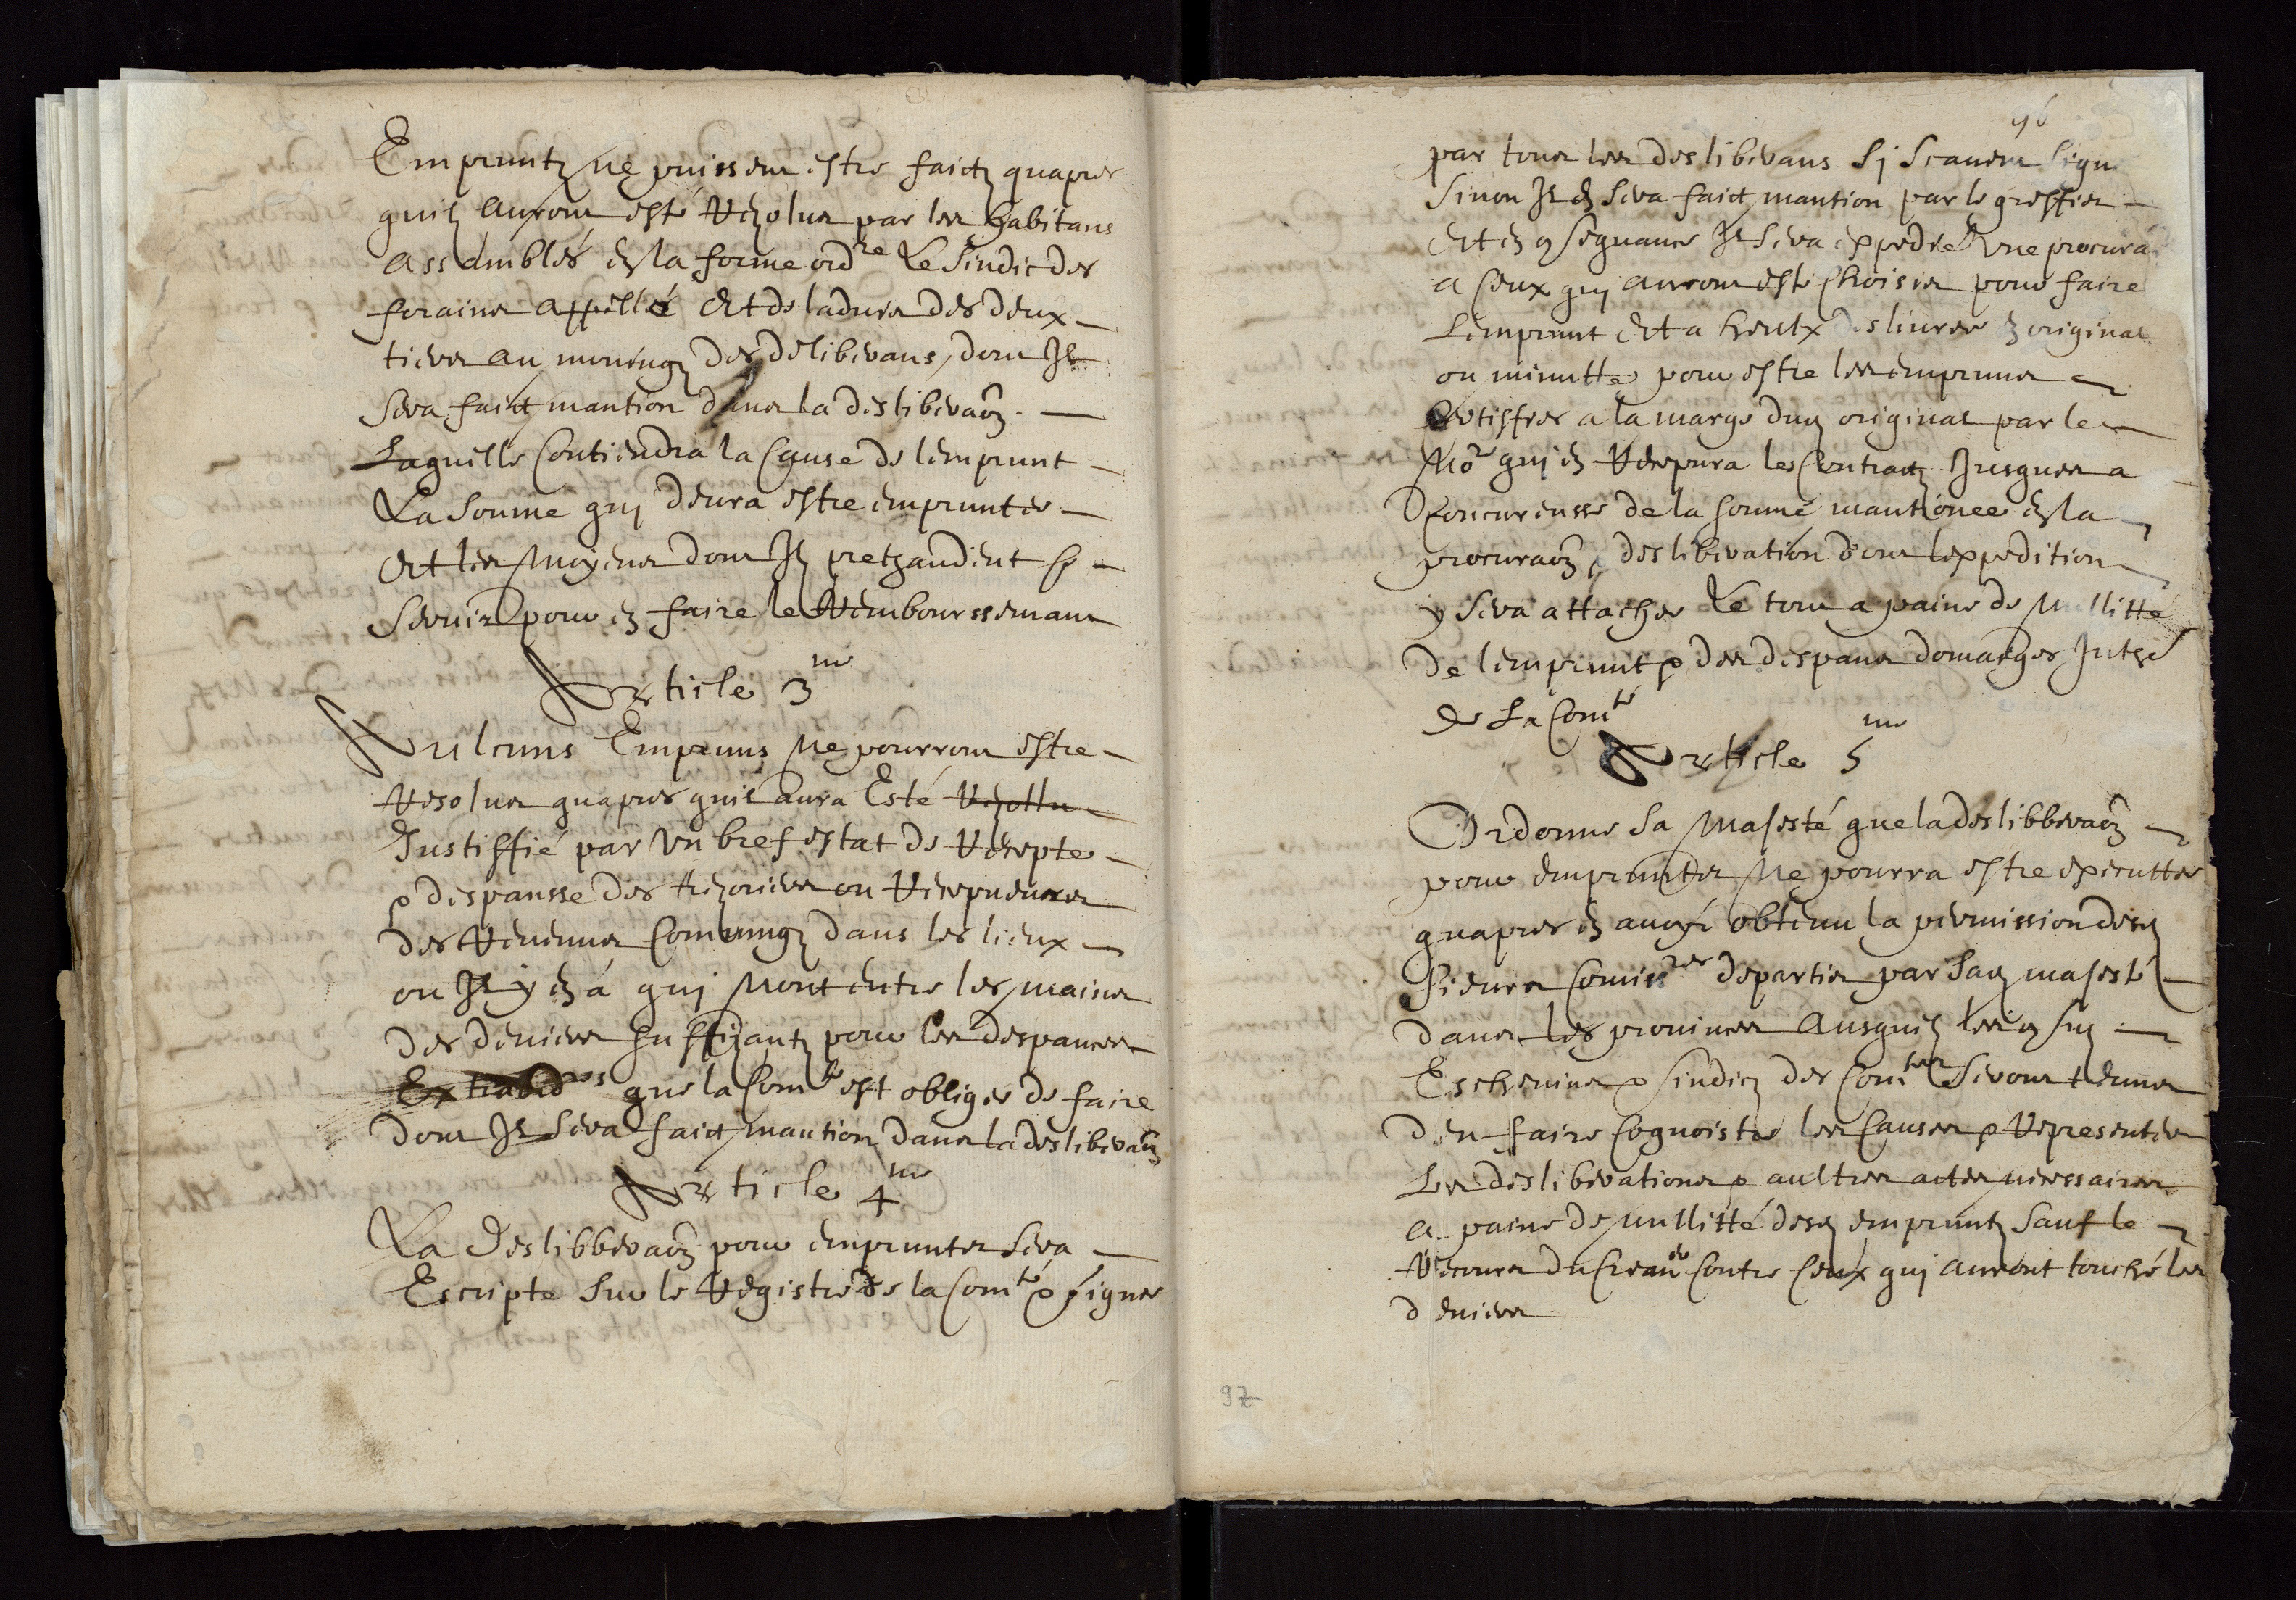 Empruntz ne puissent estre faictz quapres
quilz auront esté Rezolus par les habitans
assemblés en la forme ordre Le sindic des
forains appellé Et de ladvis des deux
tiers au moingz des deliberans, dont Il
sera faict mantion dans la desliberaõn
Laquelle Contiendra la Cause de lemprunt
La somme qui devra estre empruntée
Et les Moyens dont Ilz prethandent se
servir pour en faire le Rembourssemant
Article 3me
Aulcuns Empruns Ne pourront estre
Resolus quapres quil aura Esté Rezollu
Justiffié par un bref estat de Recepte
& despansse des trezoriers ou Recepveurs
des Revenus Commungz dans les lieux
ou Il y en á qui Nont entre les mains
des deniers suffizantz pour les despances
Extraordres que la Comté est obligée de faire
dont Il sera faict mantion dans la desliberaõn
Article 4me
La Deslibberaõn pour emprunter sera
Escripte sur le Registre de la Comté & signée
96
par tous les desliberans si scavent sign
sinon Il en sera faict mantion par le greffier
Et en consequance Il sera expediée Une procura
a ceux qui auront esté choisis pour faire
Lemprunt Et a heulx deslivrée en original
ou minutte pour estre les empruns
Certiffiés a la marge dud original par le
Nore qui en Recepvra les Contractz Jusques a
Concurensse de la somme mantionee en la
procuraõn & desliberation dont lexpedition
y sera attachée Le tout a paine de Nullitté
De lemprunt & des despans domaiges Interés
de La Comté
Article 5me
Ordonne Sa Majesté que la deslibberaõn
pour emprunter Ne pourra estre executtée
quapres en avoyr obtenu la permission desd
sieurs Comissres departis par sad majesté
dans les provinces Ausquelz les consulz
Eschevins & sindicz des Comtés seront tenus
den faire Cognoistre les Causes & Representer
Les desliberations & aultres actes necessaires
a paine de Nullitté desd empruntz sauf le
Recours du Creancier Contre Ceux qui auront touché les
deniers
97